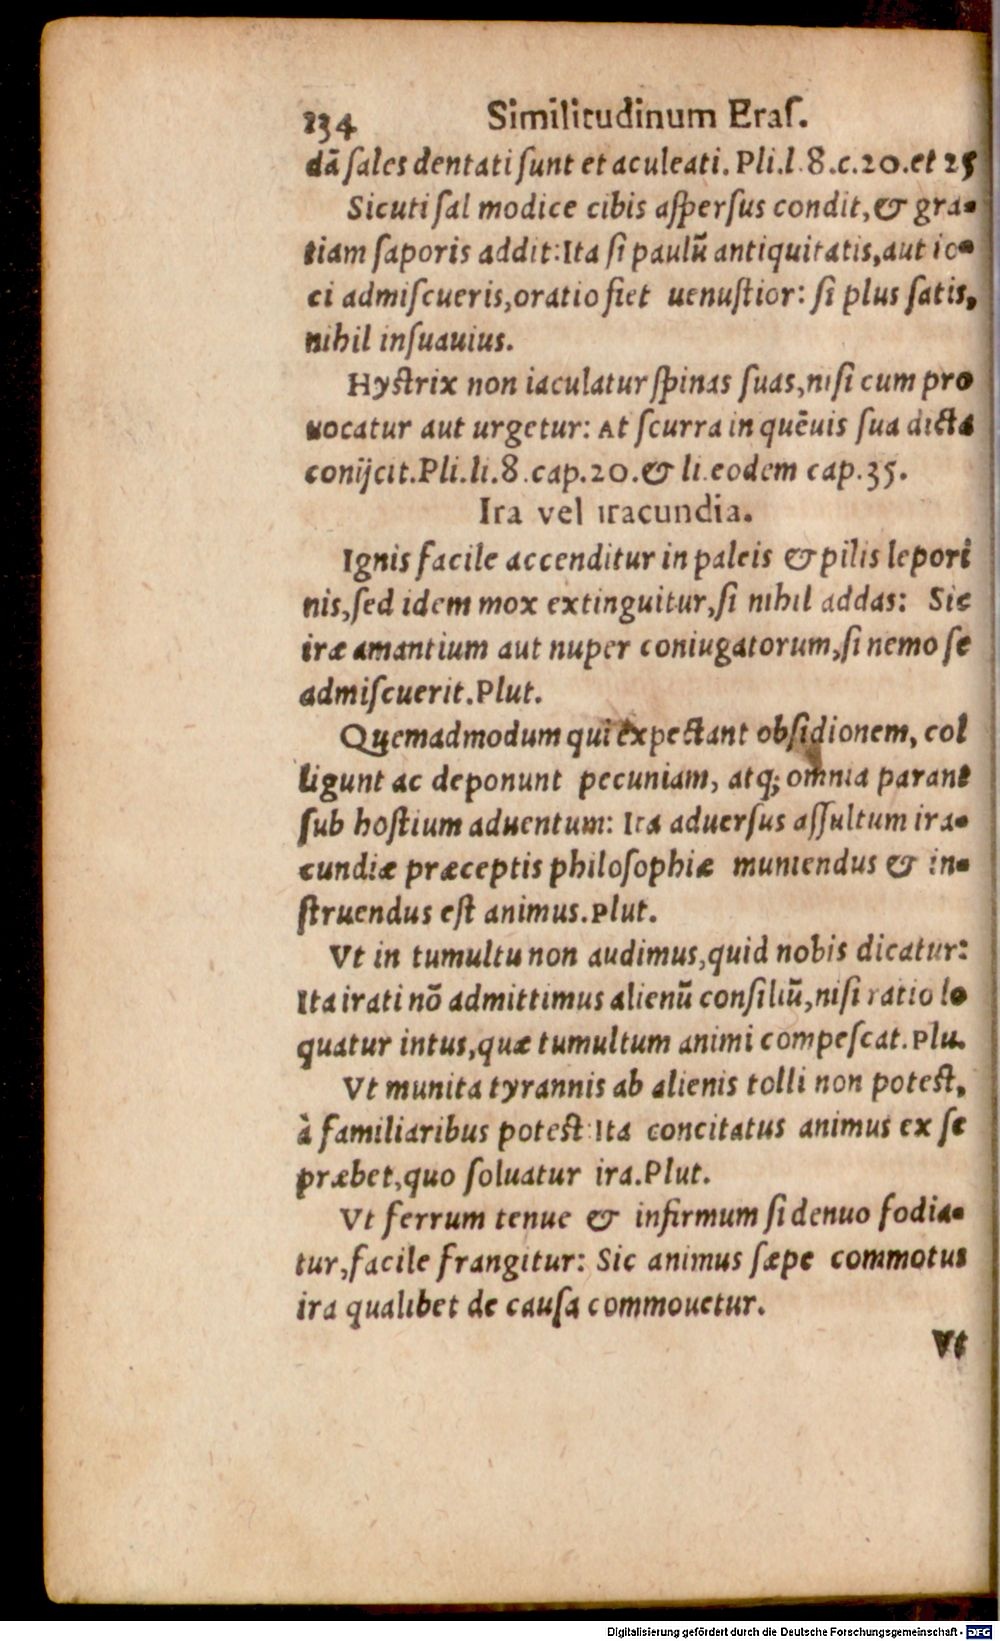 134 Similitudinum Eraſ.
dã ſales dentati ſunt et aculeati. Pli.l.8.c.20.et 25
Sicuti ſal modice cibis aſperſus condit, & gra-
tiam ſaporis addit: Ita ſi paulũ antiquitatis, aut io-
ci admiſcueris, oratio fiet uenuſtior: ſi plus ſatis,
nihil inſuauius.
Hyſtrix non iaculatur ſpinas ſuas, niſi cum pro
uocatur aut urgetur: At ſcurra in quẽuis ſua dicta
conijcit. Pli.li.8.cap.20. & li.eodem cap.35.
Ira vel iracundia.
Ignis facile accenditur in paleis & pilis lepori
nis, ſed idem mox extinguitur, ſi nihil addas: Sic
iræ amantium aut nuper coniugatorum, ſi nemo ſe
admiſcuerit. Plut.
Quemadmodum qui expectant obſidionem, col
ligunt ac deponunt pecuniam, atq; omnia parant
ſub hoſtium aduentum: Ita aduerſus aſſultum ira-
cundiæ præceptis philoſophiæ muniendus & in-
ſtruendus eſt animus. Plut.
Vt in tumultu non audimus, quid nobis dicatur:
Ita irati nõ admittimus alienũ conſiliũ, niſi ratio lo
quatur intus, quæ tumultum animi compeſcat. Plu.
Vt munita tyrannis ab alienis tolli non poteſt,
à familiaribus poteſt: Ita concitatus animus ex ſe
præbet, quo ſoluatur ira. Plut.
Vt ferrum tenue & infirmum ſi denuo fodia-
tur, facile frangitur: Sic animus ſæpe commotus
ira qualibet de cauſa commouetur.
Vt
Digitalisierung gefördert durch die Deutsche Forschungsgemeinschaft - DFG